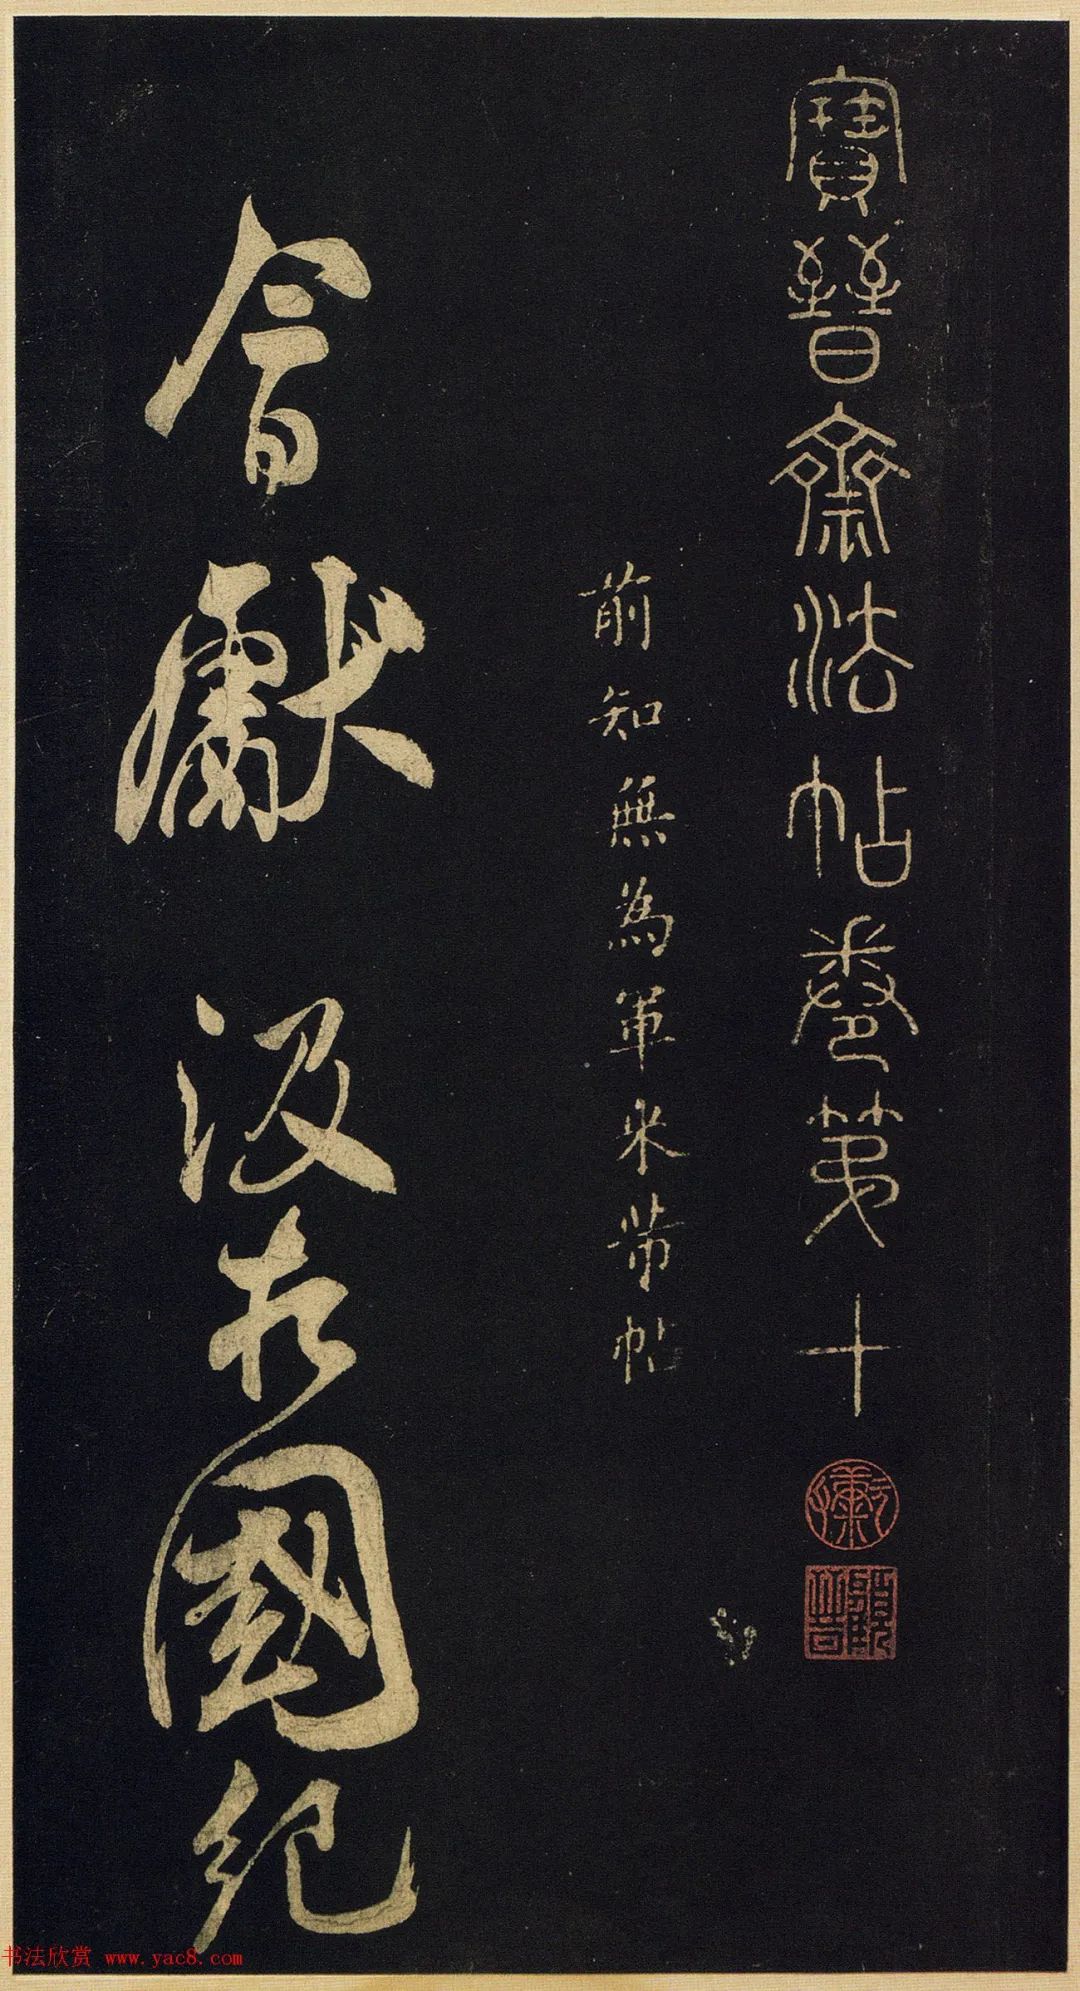 寶晉齋法帖卷第十
前知無為軍米芾帖
會獻汲相國紀
书法欣赏 www.yac8.com